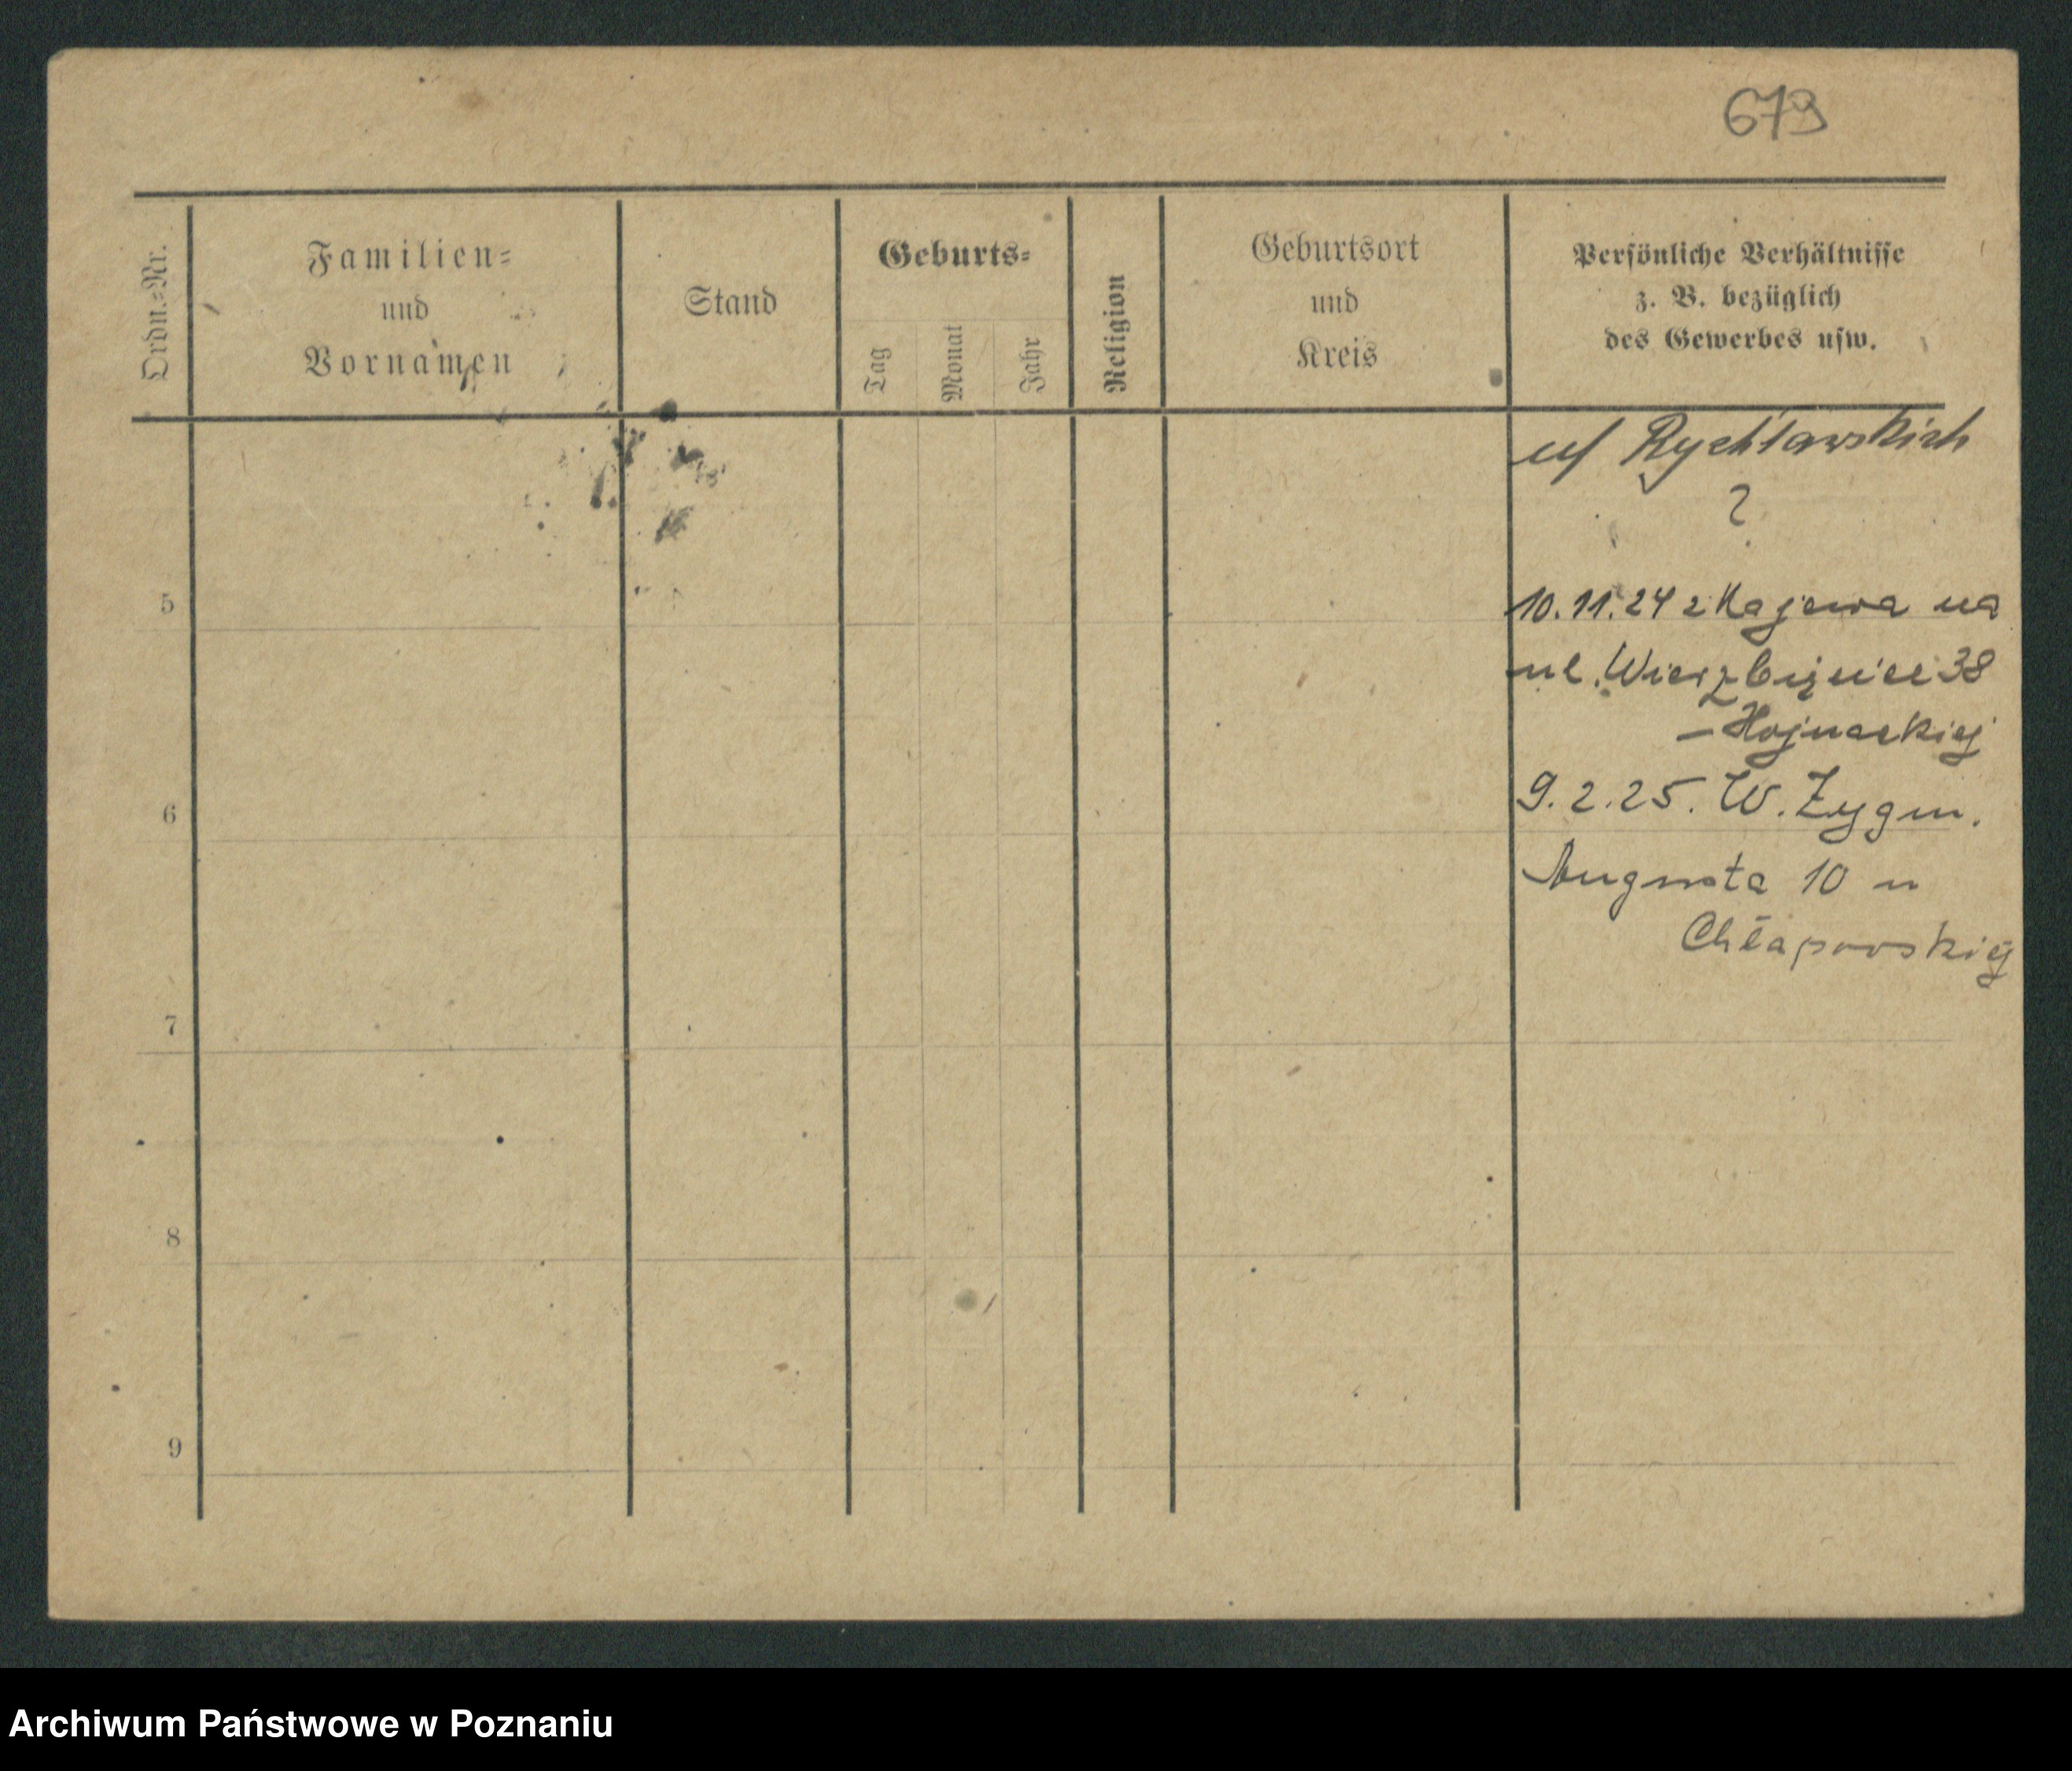 679
Ordn.=Nr.
Familien=
und
Vornamen
Stand
Geburts=
Tag
Monat
Jahr
Religion
Geburtsort
und
Kreis
Persönliche Verhältnisse
z. B. bezüglich
des Gewerbes usw.
Rychławskich
?
5
10.11.24 z Kajewa na
ul. Wierzbięcice 38
– Hojnackiej
6
9.2.25. W. Zygm.
Augusta 10 u
Chłapowskiej
7
8
9
Archiwum Państwowe w Poznaniu